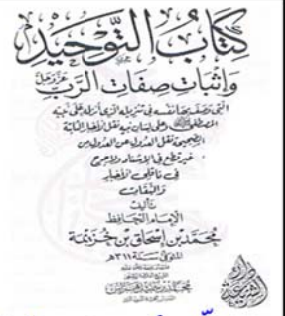 كتاب التوحيد
وإثبات صفات الرب عز وجل
التي وصف بها نفسه في تنزيله الذي أنزله على نبيه
المصطفى ﷺ وعلى لسان نبيه نقل الأخبار الثابتة
الصحيحة نقل العدول عن العدول من
غير قطع في الإسناد ولا جرح
في ناقلي الأخبار
والثقات
تأليف
الإمام الحافظ
محمد بن إسحاق بن خزيمة
المتوفى سنة ٣١١هـ
محمد خليل هراس